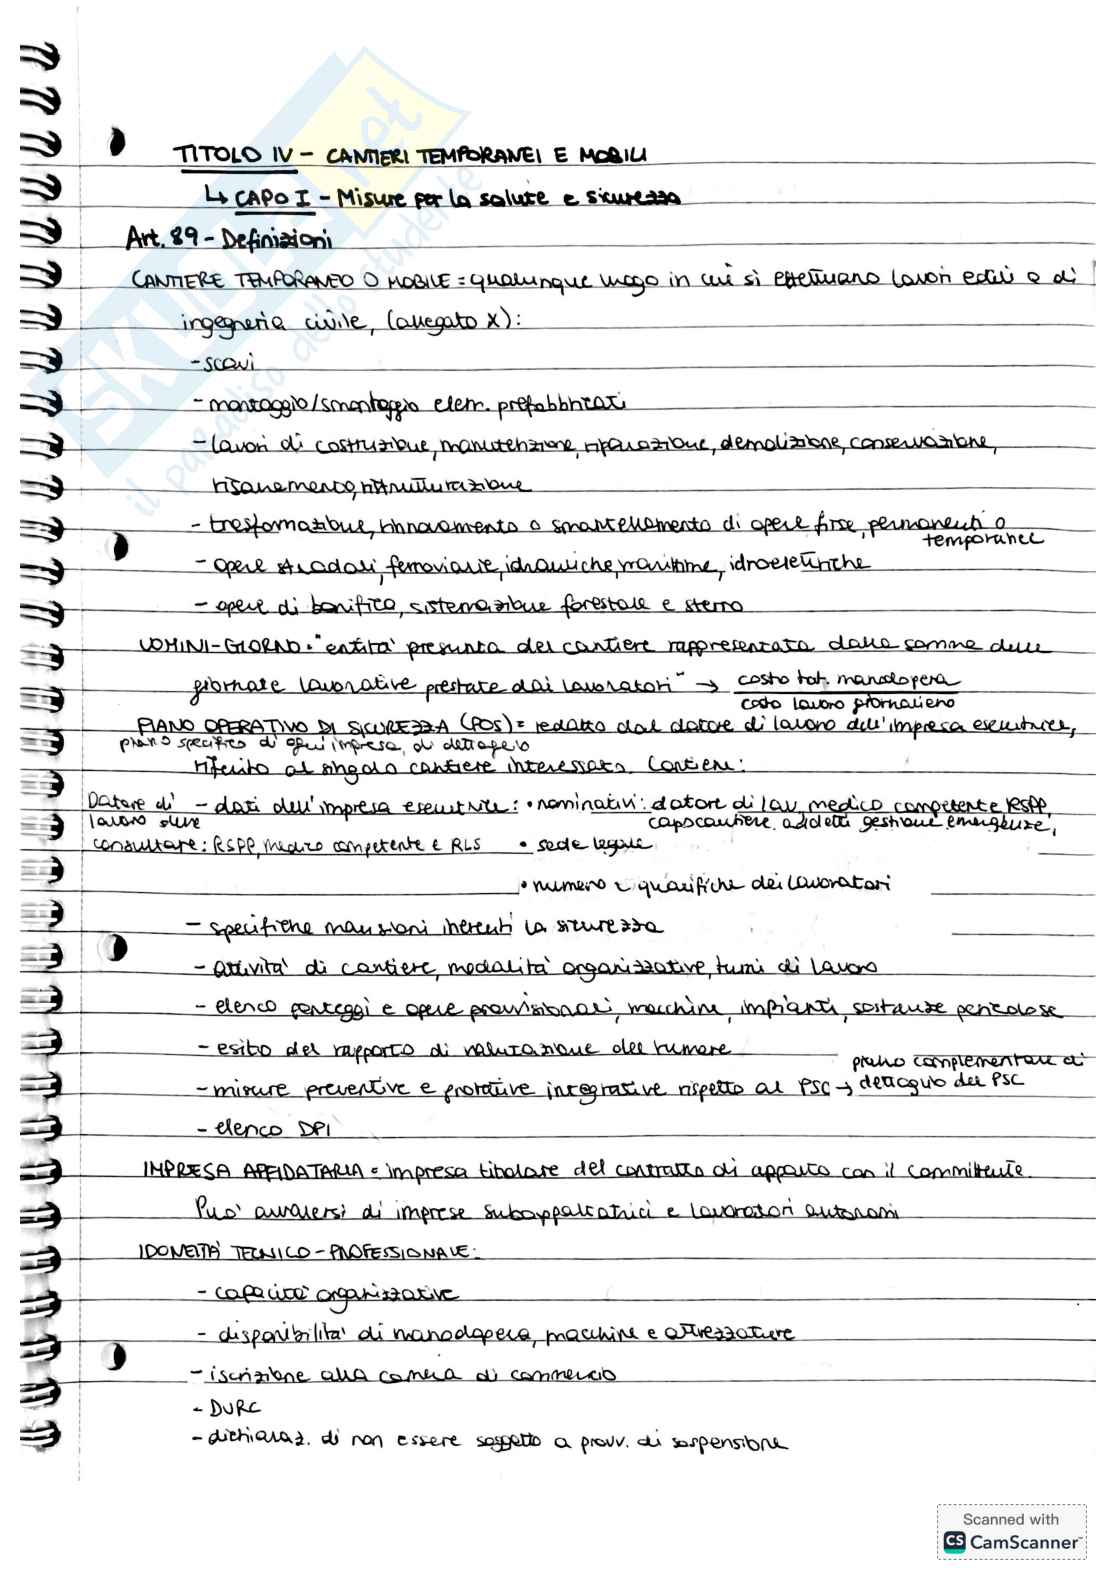 SKUOLA.net
il paradiso dello studente
TITOLO IV - CANTIERI TEMPORANEI E MOBILI
↳ CAPO I - Misure per la salute e sicurezza
Art. 89 - Definizioni
CANTIERE TEMPORANEO O MOBILE = qualunque luogo in cui si effettuano lavori edili o di
ingegneria civile, (allegato X):
- scavi
- montaggio/smontaggio elem. prefabbricati
- lavori di costruzione, manutenzione, riparazione, demolizione, conservazione,
risanamento, ristrutturazione
- trasformazione, rinnovamento o smantellamento di opere fisse, permanenti o
temporanee
- opere stradali, ferroviarie, idrauliche, marittime, idroelettriche
- opere di bonifica, sistemazione forestale e sterro
UOMINI-GIORNO = "entità presunta del cantiere rappresentata dalla somma delle
giornate lavorative prestate dai lavoratori" → costo tot. manodopera
costo lavoro giornaliero
PIANO OPERATIVO DI SICUREZZA (POS) = redatto dal datore di lavoro dell'impresa esecutrice,
piano specifico di ogni impresa, di dettaglio
riferito al singolo cantiere interessato. Contiene:
Datore di - dati dell'impresa esecutrice: • nominativi: datore di lav, medico competente RSPP,
lavoro deve capocantiere, addetti gestione emergenze,
consultare: RSPP, medico competente e RLS • sede legale
• numero e qualifiche dei lavoratori
- specifiche mansioni inerenti la sicurezza
- attività di cantiere, modalità organizzative, turni di lavoro
- elenco ponteggi e opere provvisionali, macchine, impianti, sostanze pericolose
- esito del rapporto di valutazione del rumore
piano complementare di
- misure preventive e protettive integrative rispetto al PSC → dettaglio del PSC
- elenco DPI
IMPRESA AFFIDATARIA = impresa titolare del contratto di appalto con il committente.
Può avvalersi di imprese subappaltatrici e lavoratori autonomi
IDONEITÀ TECNICO-PROFESSIONALE:
- capacità organizzative
- disponibilità di manodopera, macchine e attrezzature
- iscrizione alla camera di commercio
- DURC
- dichiaraz. di non essere soggetto a provv. di sospensione
Scanned with
CS CamScanner